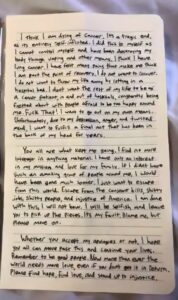 I think I am dying of Cancer, It's a tragic end,
as its entirely self inflicted. I did this to myself as
I cannot control myself and have been destroying my
body through vaping and other means. I think I have
lung cancer, I have felt many pains that make me think
I am past the point of recovery. I do not want to recover.
I do not want to throw my life away by sitting in a
hospital bed. I don't want the rest of my life to be as
a cancer patient, a null of despair, constantly being
fretted about with people afraid to be too happy around
me. Fuck That! I want to go out on my own means.
Unfortunately, due to my depression, anger, and twisted
mind, I want to fulfill a final act that has been in
the back of my head for years.
You all are what kept me going. I find no more
interest in anything material. I have over an interest
in my passions and lost for my focus. If I didn't have
such an amazing group of people around me, I would
have been gone much sooner. I just want to escape
from this world. Escape from the constant bills, shitty
jobs, shitty people, and injustice of America. I am done
with this. I will not hear. I will be selfish, and leave
you to pick up the pieces. Its my fault. Blame me, but
please move on.
Whether you accept my apologies or not, I hope
you all can move past this and continue your lives.
Remember to be good people. Now more than ever the
world needs more love even if you don't get it in return.
Please find hope, find love, and stand up to injustice.